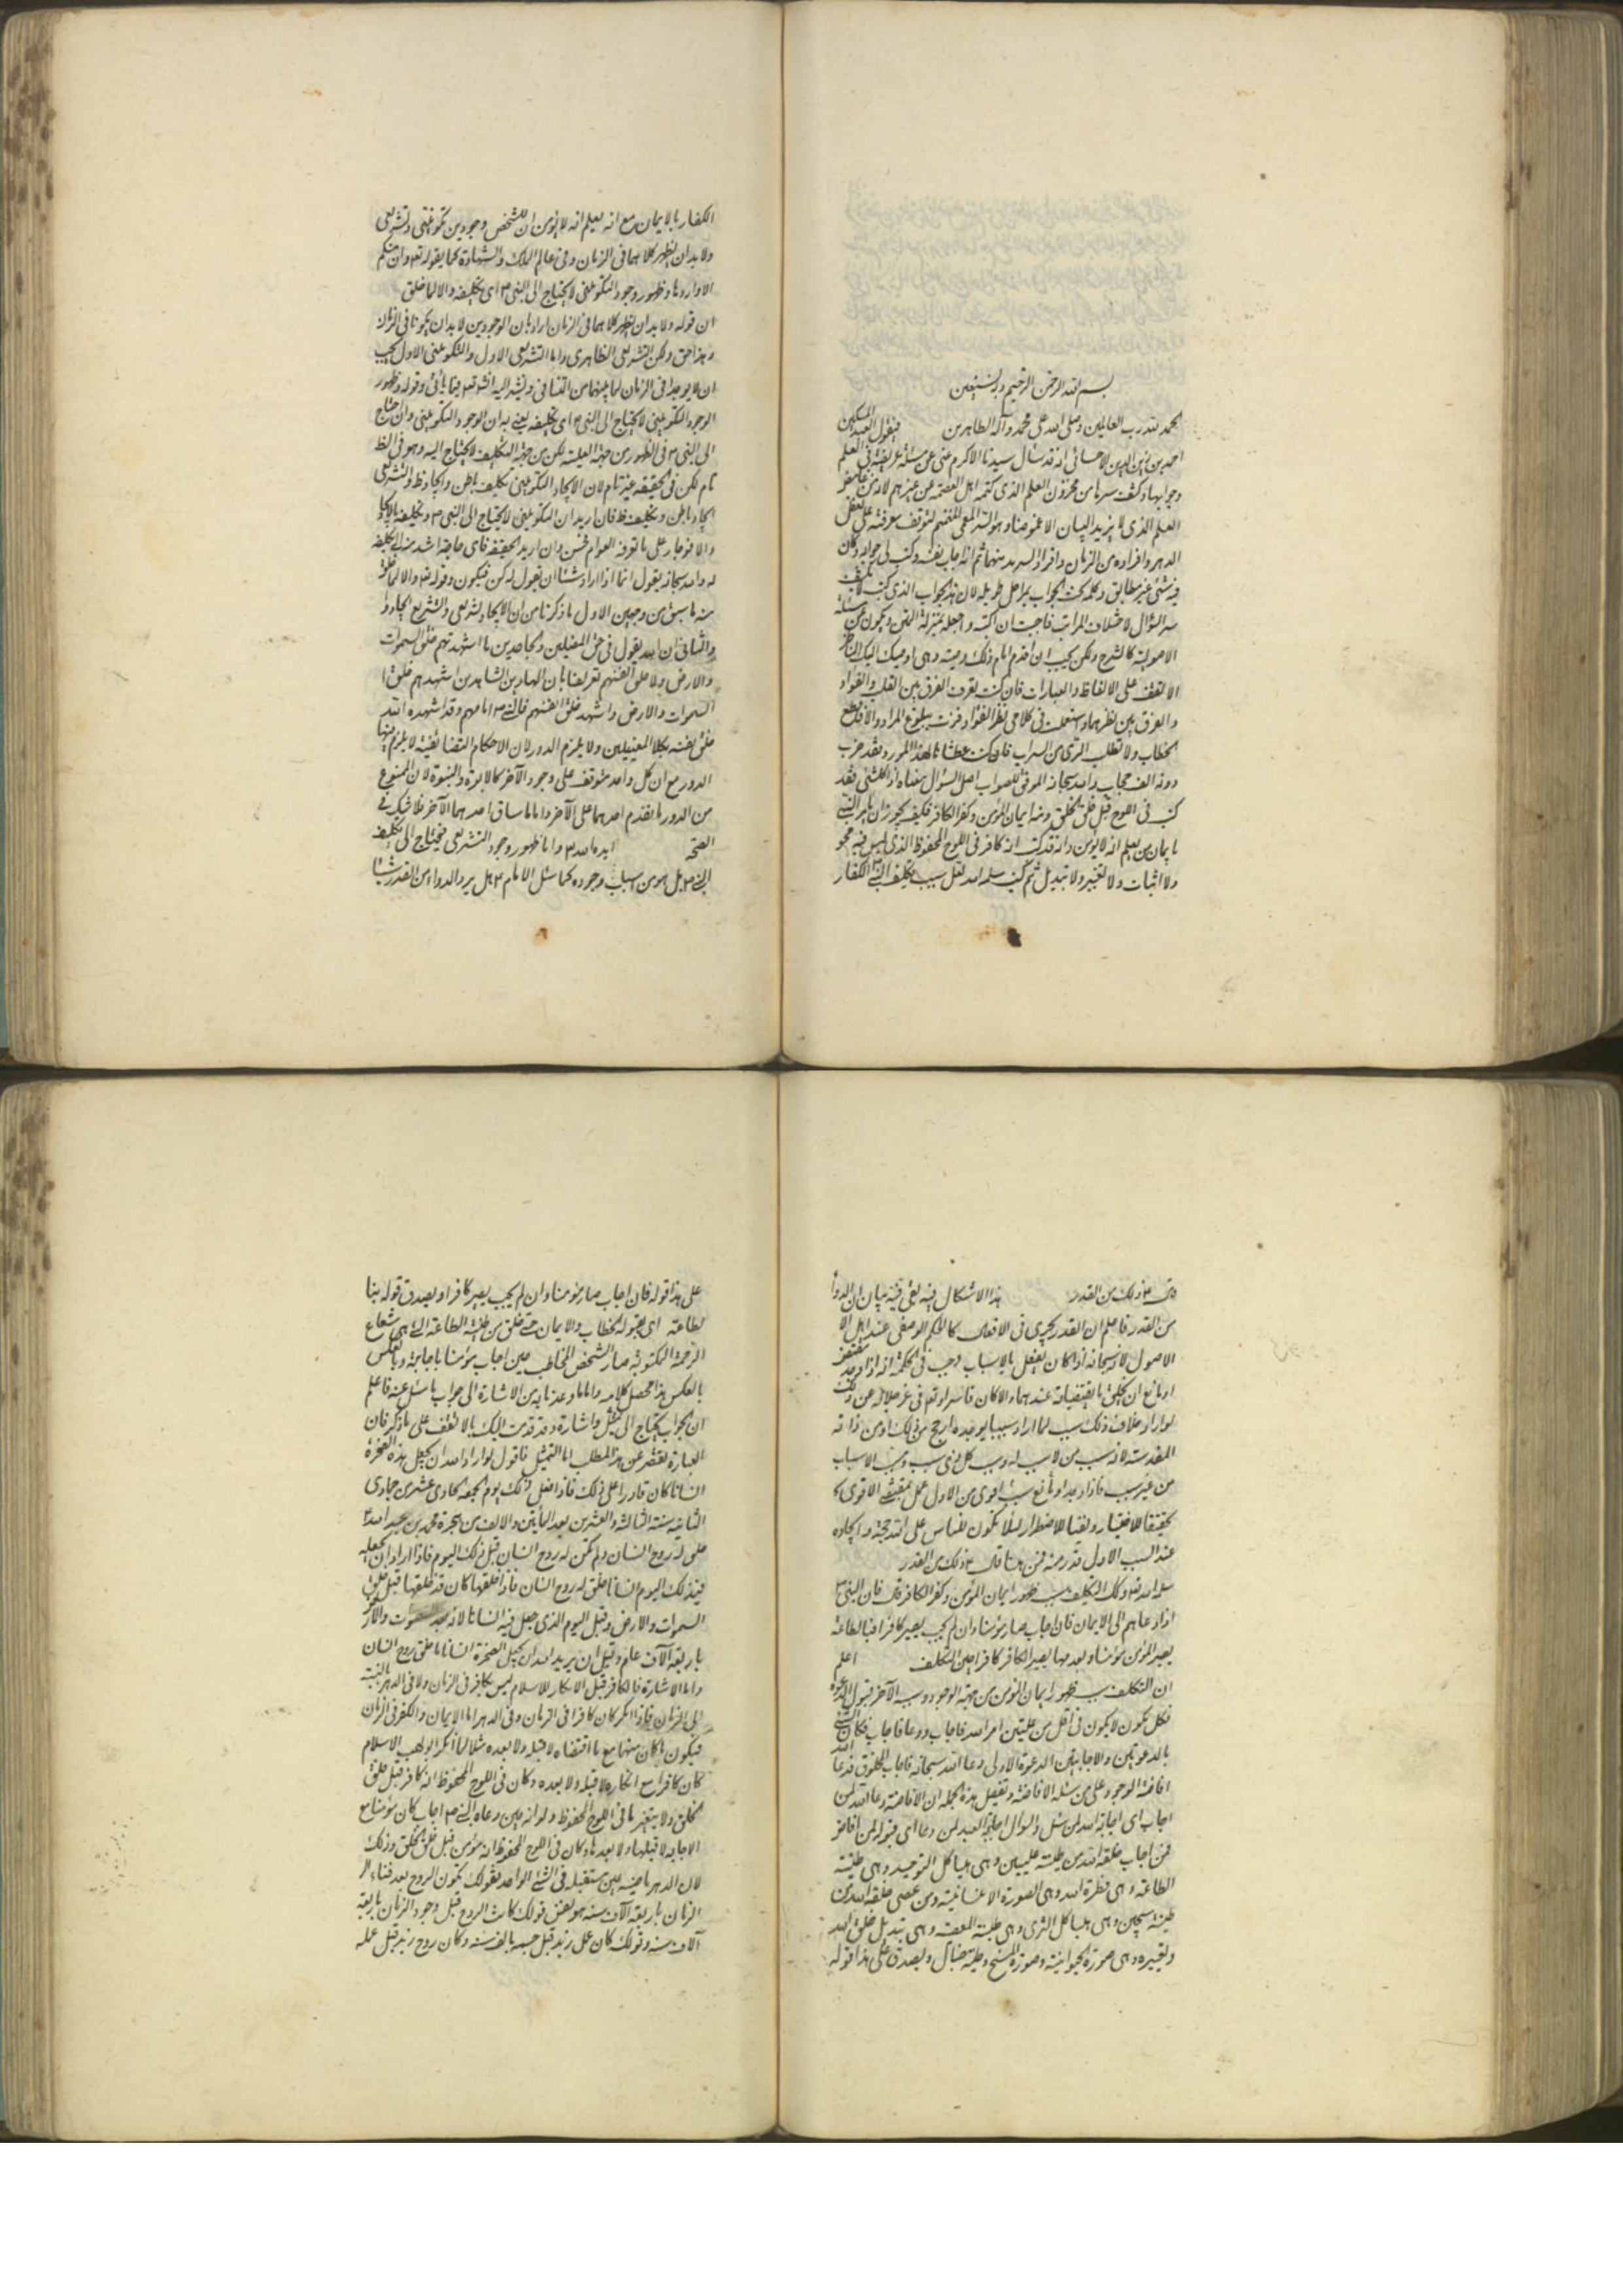 بسم الله الرحمن الرحيم وبه نستعين
الحمد لله رب العالمين وصلى الله على محمد وآله الطاهرين فيقول العبد المسكين
احمد بن زين الدين الاحسائي انه قد سأل سيدنا الاكرم عن مسئلة في العلم
وجوابها وكشف سرها من مخزون العلم الذي كتمه اهل العصمة عن غيرهم لانه من
العلم الذي لا يزيده البيان الا غموضا لتوقف معرفته على
الدهر وافراده من الزمان وافراد السرمد منهما ثم انه اجاب نفسه وكتب لي جوابه وكان
فيه شيء غير مطابق الجواب بمراحل طويلة لان هذا الجواب الذي
سر السؤال لاختلاف المراتب فاحببت ان اكتبه واجعله بمنزلة المتن ويكون
كالشرح ولكن يجب ان اقدم امام ذلك وصية وهي اوصيك
الا تقف على الالفاظ والعبارات فان كنت تعرف الفرق بين القلب والفؤاد
والفرق بين نظرهما واستعملت في كلامي نظر الفؤاد فزت ببلوغ المراد والا فاقطع
الخطاب ولا تطلب الري من السراب فان كنت عطشانا لهذا المورد فقد ضرب
دونه الف حجاب والله سبحانه الموفق للصواب اصل السؤال معناه اذا كان كل شيء قد
كتب في اللوح قبل خلق الخلق ومنه ايمان المؤمن وكفر الكافر فكيف يجوز ان يأمر النبي
بايمان من يعلم انه لا يؤمن وانه قد كتب انه كافر في اللوح المحفوظ الذي ليس فيه محو
ولا اثبات ولا تغيير ولا تبديل ثم كتب سلمه الله لعل سبب تكليف النبي ص الكفار
الكفار بالايمان مع انه يعلم انه لا يؤمن ان للشخص وجودين تكويني وتشريعي
ولا بد ان يظهر كلاهما في الزمان وفي عالم الملك والشهادة كما يقوله تعالى وان منكم
الا واردها وظهور وجود التكويني لا يحتاج الى النبي ص اي تكليفه والا لما خلق
ان قوله ولا بد ان يظهر كلاهما في الزمان اراد بان الوجودين لا بد ان يكونا في الزمان
وهذا حق ولكن التشريعي الظاهري واما التشريعي الاول والتكويني الاول يجب
ان لا يوجدا في الزمان لما بينهما من التنافي وقوله وظهور
الوجود التكويني لا يحتاج الى النبي ص اي تكليفه يعني به ان الوجود التكويني وان احتاج
الى النبي ص في الظهور من جهة العلية لكن من جهة التكليف لا يحتاج اليه وهو في الظ
تام لكن في الحقيقة غير تام لان الايجاد التكويني تكليف باطن وايجاد ظ والتشريعي
ايجاد باطن وتكليف ظ فان اريد ان التكويني لا يحتاج الى النبي ص وتكليفه
والا فهو جار على ما تعرفه العوام فحسن وان اريد الحقيقة فاي حاجة اشد من
له والله سبحانه يقول انما اذا اراد شيئا ان نقول له كن فيكون وقوله والا لما خلق
فيه ما سبق من وجهين الاول ما ذكرنا من ان الايجاد تشريعي والتشريع ايجاد
والثاني ان الله يقول في حق المضلين والجاحدين ما اشهدتهم خلق السموات
والارض ولا خلق انفسهم تعريضا بان الهادين الشاهدين اشهدهم خلق
السموات والارض واشهد خلق انفسهم فالنبي ص امامهم وقد اشهده الله
خلق نفسه ولا يلزم الدور لان الاحكام التضايفية لا يلزم
الدور مع ان كل واحد متوقف على وجود الآخر كالابوة والبنوة لان الممنوع
من الدور ما تقدم احدهما على الآخر واما ما ساوق احدهما الآخر فلا شك في
الصحة ايده الله واما ظهور وجود التشريعي فيحتاج الى تكليف
النبي ص بل هو من اسباب وجوده كما سئل الامام ع هل يرد الدواء من القدر شيئا
قال ع ذلك من القدر هذا الاشكال فيه بقي فيه بيان ان الدواء
من القدر فاعلم ان القدر يجري في الافعال كالحكم الوضعي عند اهل
الاصول لانه سبحانه لما كان يفعل بالاسباب وجب في الحكمة انه اذا وجد مقتض
او مانع ان يخلق ما يقتضيانه عندهما
لو اراد خلاف ذلك سبب لما اراد سببا يوجده ارجح من ذلك او من ذاته
المقدسة لانه سبب من لا سبب له وسبب كل ذي سبب ومسبب الاسباب
من غير سبب فاذا وجد او مانع شيء اقوى من الاول عمل بمقتضى الاقوى
تحقيقا للاختيار ونفيا للاضطرار لئلا يكون للناس على الله حجة وايجاده
عند السبب الاول قدر منه فمن هنا قال ع ذلك من القدر
سلمه الله تعالى وذلك التكليف سبب ظهور ايمان المؤمن وكفر الكافر فان النبي ص
اذا دعاهم الى الايمان فان اجاب صار مؤمنا وان لم يجب يصير كافرا فبالطاعة
يصير المؤمن مؤمنا وبعدمها يصير الكافر كافرا حين التكليف اعلم
ان التكليف سبب ظهور ايمان المؤمن من جهة الوجود وسببه الآخر قبول الدعوة
فكل مكون لا يكون في اقل من علتين امر الله فاجاب ودعا فاجاب فكان الشيء
بالدعوتين والاجابتين الدعوة الاولى دعا الله سبحانه فاجاب المخلوق فدعا الله
افاضة الوجود على من سئله الافاضة وتفصيل هذه الجملة ان الافاضة دعاء الله لمن
اجاب اي اجابة الله لمن سئل والسؤال اجابة العبد لمن دعا اي قبوله لمن افاض
فمن اجاب خلقه الله من طينة عليين وهي هياكل التوحيد وهي طينة
الطاعة وهي فطرة الله وهي الصورة الانسانية ومن عصى خلقه الله من
طينة سجين وهي هياكل الثرى وهي طينة المعصية وهي تبديل خلق الله
وتغييره وهي صورة الحيوانية وصورة المسخ وطينة خبال ويصدق على هذا قوله
على هذا قوله فان اجاب صار مؤمنا وان لم يجب يصير كافرا ويصدق قوله هنا
لطاعته اي بقبوله للخطاب والايمان حتى خلق من طينة الطاعة التي هي شعاع
الرحمة المكتوبة صار الشخص المخاطب حين اجاب مؤمنا باجابته وبالعكس
بالعكس هذا محصل كلامه واما ما وعدنا به من الاشارة الى جواب ما سئل عنه فاعلم
ان الجواب يحتاج الى تمثيل واشارة وقد قدمت اليك بالا تقف على ما ذكر فان
العبارة تقصر عن هذا المطلب اما التمثيل فاقول لو اراد الله ان يجعل هذه الصخرة
انسانا كان قادرا على ذلك فاذا فعل ذلك يوم الجمعة الحادي عشر من جمادى
الثانية سنة الثالثة والعشرين بعد المأتين والالف من هجرة محمد بن عبد الله ص
خلق له روح انسان ولم تكن له روح انسان قبل ذلك اليوم فاذا اراد ان يجعله
في ذلك اليوم انسانا خلق له روح انسان فاذا خلقها كان قد خلقها قبل خلق
السموات والارض وقبل اليوم الذي جعل فيه انسانا لانه والارض
باربعة آلاف عام وقبل ان يريد الله ان يجعل الصخرة انسانا ما خلق روح انسان
واما الاشارة فالكافر قبل الانكار للاسلام ليس بكافر في الزمان ولا في الدهر بالنسبة
الى الزمان فاذا انكر كان كافرا في الزمان وفي الدهر اما الايمان والكفر في الزمان
فيكون ما كان منهما مع ما اقتضاه لا قبله ولا بعده مثلا لما انكر ابو لهب الاسلام
كان كافرا مع انكاره لا قبله ولا بعده وكان في اللوح المحفوظ انه كافر قبل خلق
الخلق ولا يتغير ما في اللوح المحفوظ ولو انه حين دعاه النبي ص اجاب كان مؤمنا مع
الاجابة لا قبلها ولا بعدها وكان في اللوح المحفوظ انه مؤمن قبل خلق الخلق وذلك
لان الدهر ماضيه عين مستقبله في الشيء الواحد فقولك تكون الروح بعد فناء
الزمان باربعة آلاف سنة هو بعض قولك كانت الروح قبل وجود الزمان باربعة
آلاف سنة وقولك كان عمل زيد قبل جسمه بالف سنة وكان روح زيد قبل عمله